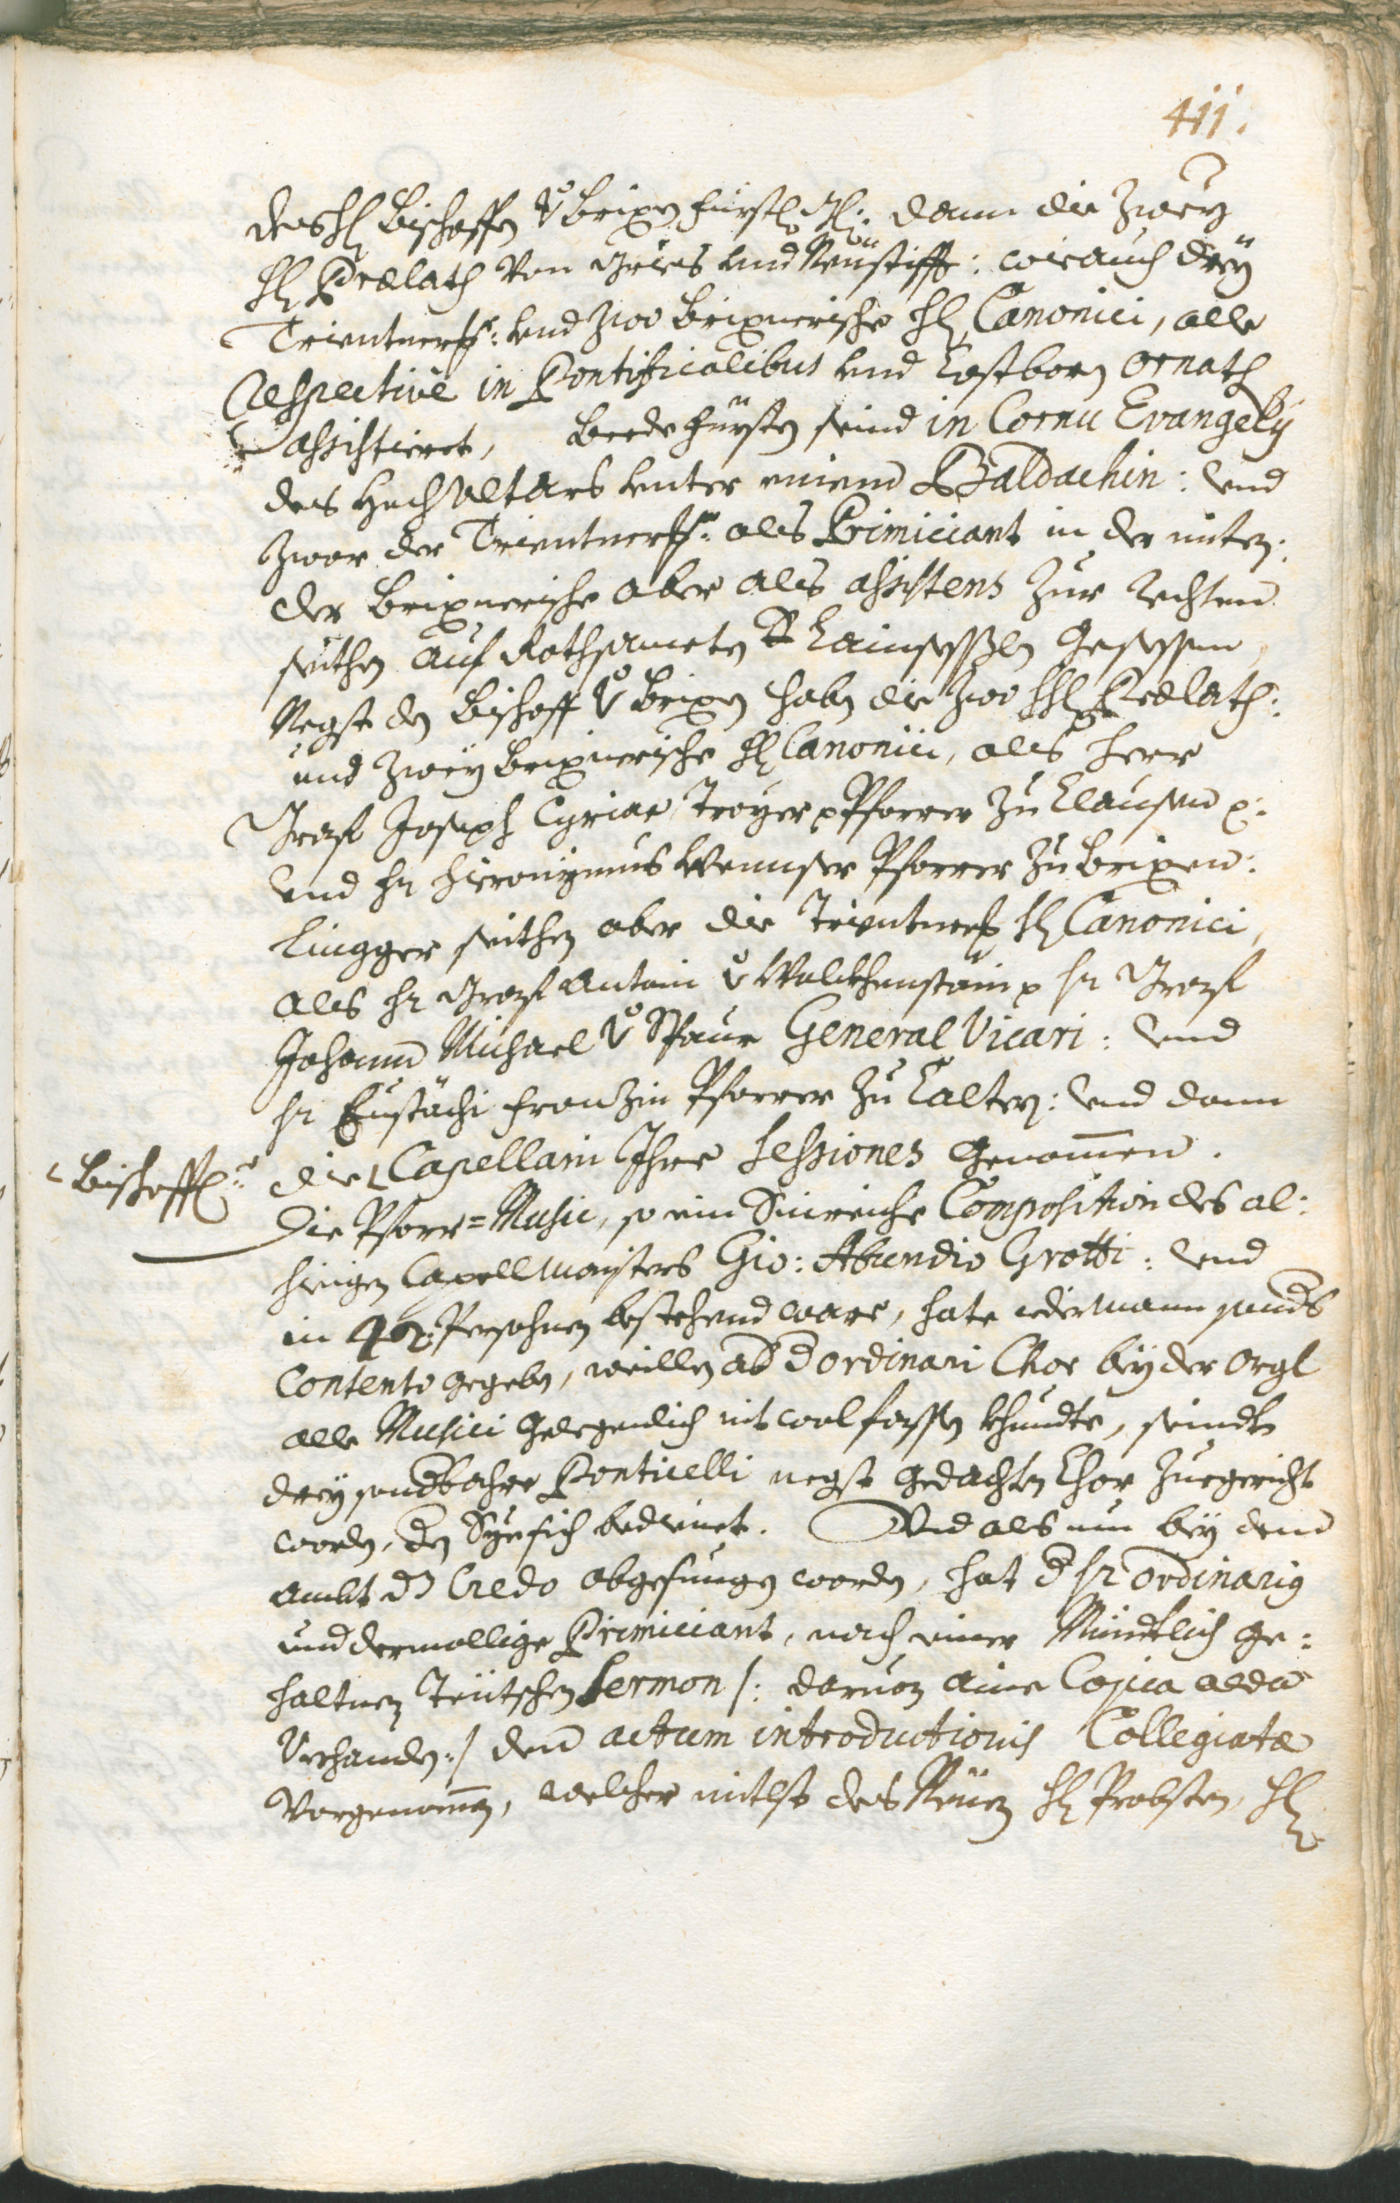 411.
des H Bischoffen v Brixen Fürstl: Gl: dann die Zweÿ
H Prælath von Gries und Neustifft: wie auch dreÿ
Trientnerisch: und zwo Brixnerische H Canonici, alle
respective in Pontificalibus und Costbarn ornath
assistieret, Beede Fürsten seind in Cornu Evangelÿ
des Hoch Altars unter einem Baldachin: und
zwar der Trientnerisch: als Primiciant in der miten:
der Brixnerische aber als assistens zur rechten
seithen auf Rothsameten Lainsesslen gesessen,
Negst den Bischoff v Brixen haben die zwo HH Prælath:
und zweÿ Brixnerische H Canonici, als Herr
Graf Joseph Cyriac Troyer p Pfarrer zu Clausen p:
und Hr Hieronÿmus Wennser Pfarrer zu Brixen:
Lingger seithen aber die Trientnerisch H Canonici,
als Hr Graf Antoni v Wolckhenstain p Hr Graf
Johann Michael v Spaur General Vicari: und
Hr Eustachi Franzin Pfarrer zu Caltern: und dann
Bischoffl: die Capellani Ihre Sessiones genomen.
Die Pfarr=Music, so ein Sinreiche Composition des al:
hiesigen Capellmaisters Gio: Abundio Grotti: und
in Persohnen bestehend ware, hate iedermann sonders
Contento gegeben, weillen aŭf d ordinari Chor beÿ der Orgl
alle Musici gelegenlich nit wol fassen khundte, seindt
dreÿ sonderbahre Ponticelli negst gedachten Chor zuegericht
worden, den Sÿe sich bedienet. Und als nun beÿ dem
Ambt dz Credo abgesungen worden, hat d Hr ordinarius
und dermallige Primiciant, nach einer Mündtlich ge:
haltnen Teütschen Sermon /: daruon aine Copia alda
Verhanden:/ den actum introductionis Collegiatæ
Vorgenomen, welcher mitlst des Neuen H Probsten, H